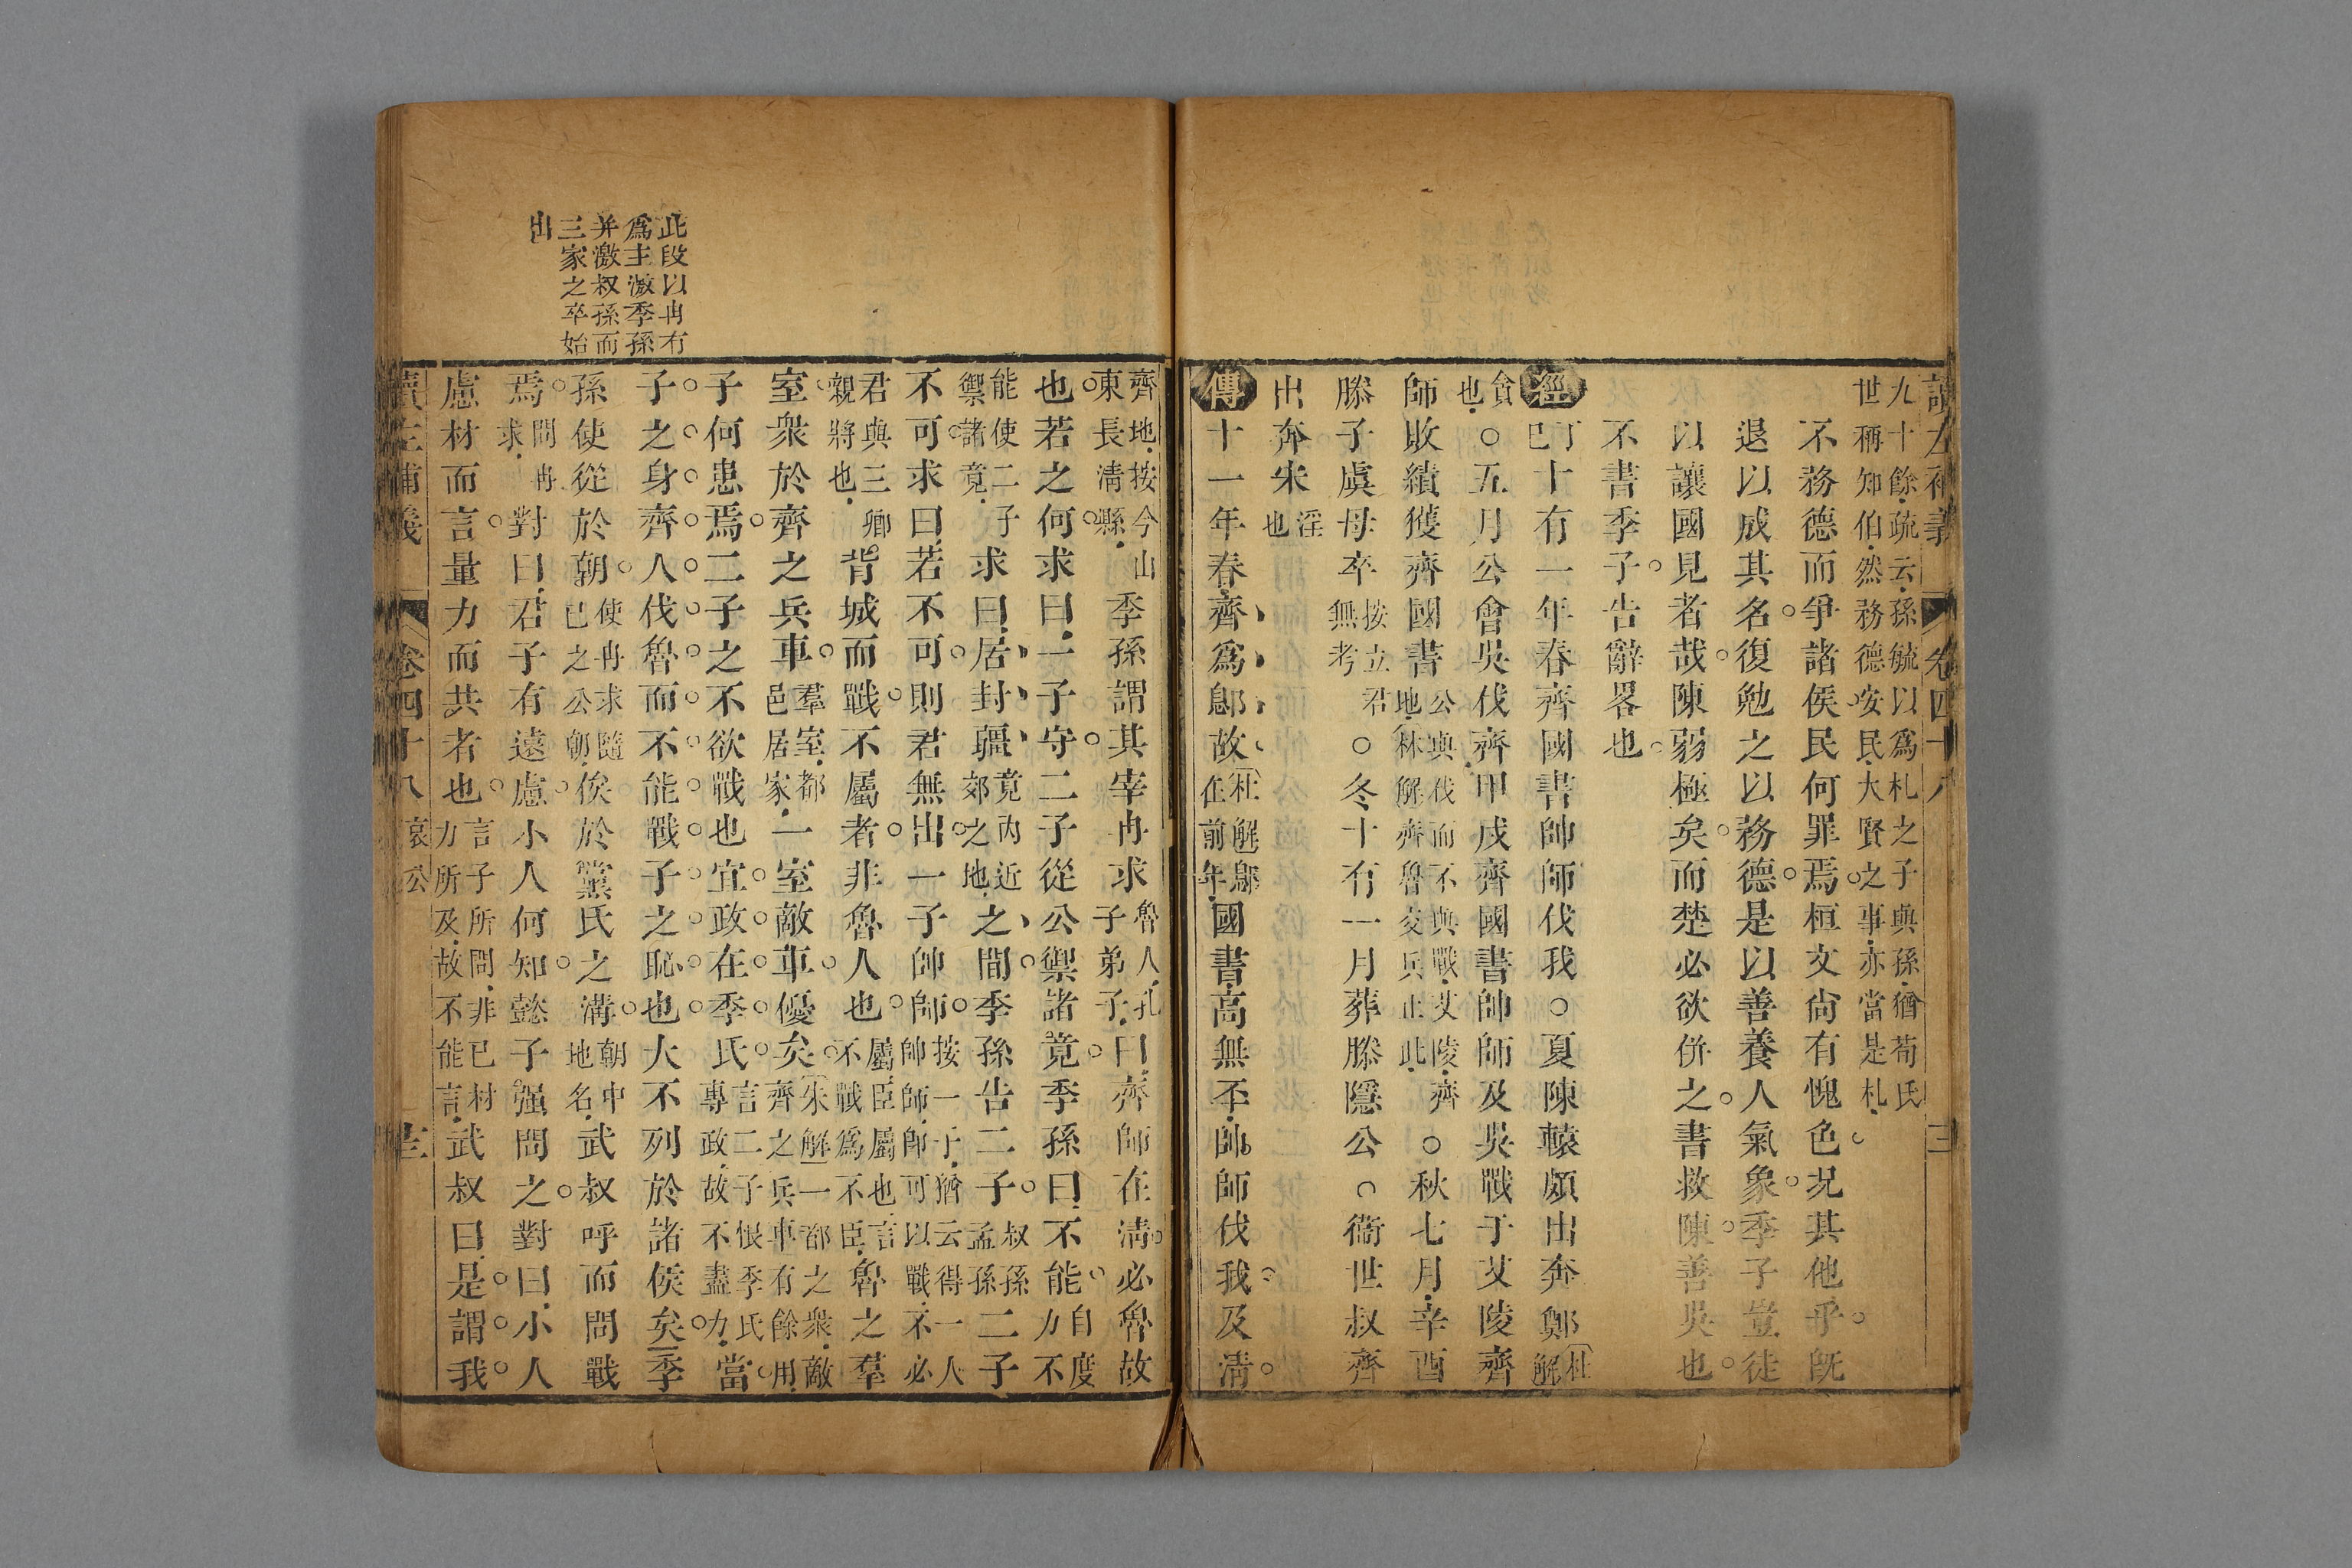 讀左補義 卷四十八 三
九十餘疏云孫毓以爲札之子與孫猶荀氏
世稱知伯然務德安民大賢之事亦當是札
不務德而爭諸侯民何罪焉桓文尙有愧色况其他乎旣
退以成其名復勉之以務德是以善養人氣象季子豈徒
以讓國見者哉陳弱極矣而楚必欲併之書救陳善吳也
不書季子告辭畧也
經丁巳十有一年春齊國書帥師伐我○夏陳轅頗出奔鄭杜解
貪也○五月公會吳伐齊甲戌齊國書帥師及吳戰于艾陵齊
師敗績獲齊國書公與伐而不與戰艾陵齊地林解齊魯交兵止此○秋七月辛酉
滕子虞母卒按立君無考○冬十有一月葬滕隱公○衞世叔齊
出奔宋淫也
傳十一年春齊爲鄎故杜解鄎在前年國書高無㔻帥師伐我及淸
齊地按今山東長淸縣季孫謂其宰冉求魯人孔子弟子曰齊師在淸必魯故
也若之何求曰一子守二子從公禦諸竟季孫曰不能自度力不
能使二子禦諸竟求曰居封疆竟內近郊之地之間季孫告二子叔孫孟孫二子
不可求曰若不可則君無出一子帥師按一子帥師猶云得一人帥師可以戰不必
君與三卿親將也背城而戰不屬者非魯人也屬臣屬也言不戰爲不臣魯之羣
室衆於齊之兵車羣室都邑居家一室敵車優矣朱解一都之衆敵齊之兵車有餘用
子何患焉二子之不欲戰也宜政在季氏言二子恨季氏專政故不盡力當
子之身齊人伐魯而不能戰子之恥也大不列於諸侯矣季
孫使從於朝使冉求隨已之公朝俟於黨氏之溝朝中地名武叔呼而問戰
焉問冉求對曰君子有遠慮小人何知懿子强問之對曰小人
慮材而言量力而共者也言子所問非已材力所及故不能言武叔曰是謂我
讀左補義 卷四十八 哀公 三
此段以冉有
爲主激季孫
并激叔孫而
三家之卒始
出